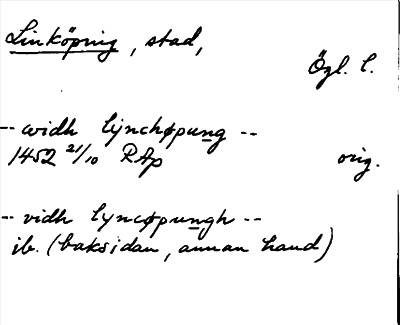 Linköping, stad,
Ögl. l.
-- widh lijnchøpung --
1452 21/10 RAp orig.
-- vidh lyncøpungh --
ib. (baksidan, annan hand)